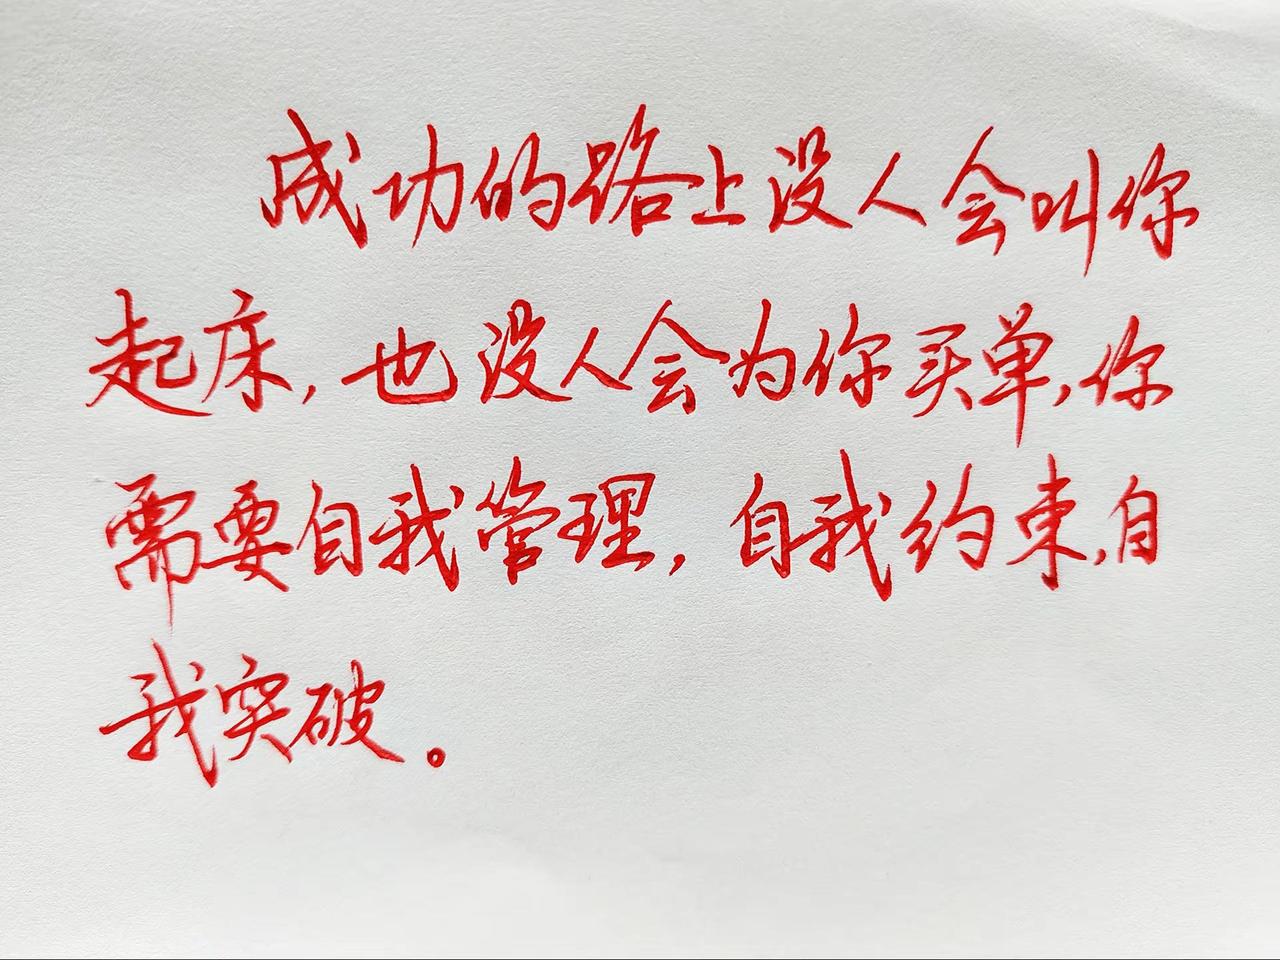 成功的路上没人会叫你
起床,也没人会为你买单,你
需要自我管理,自我约束,自
我突破。